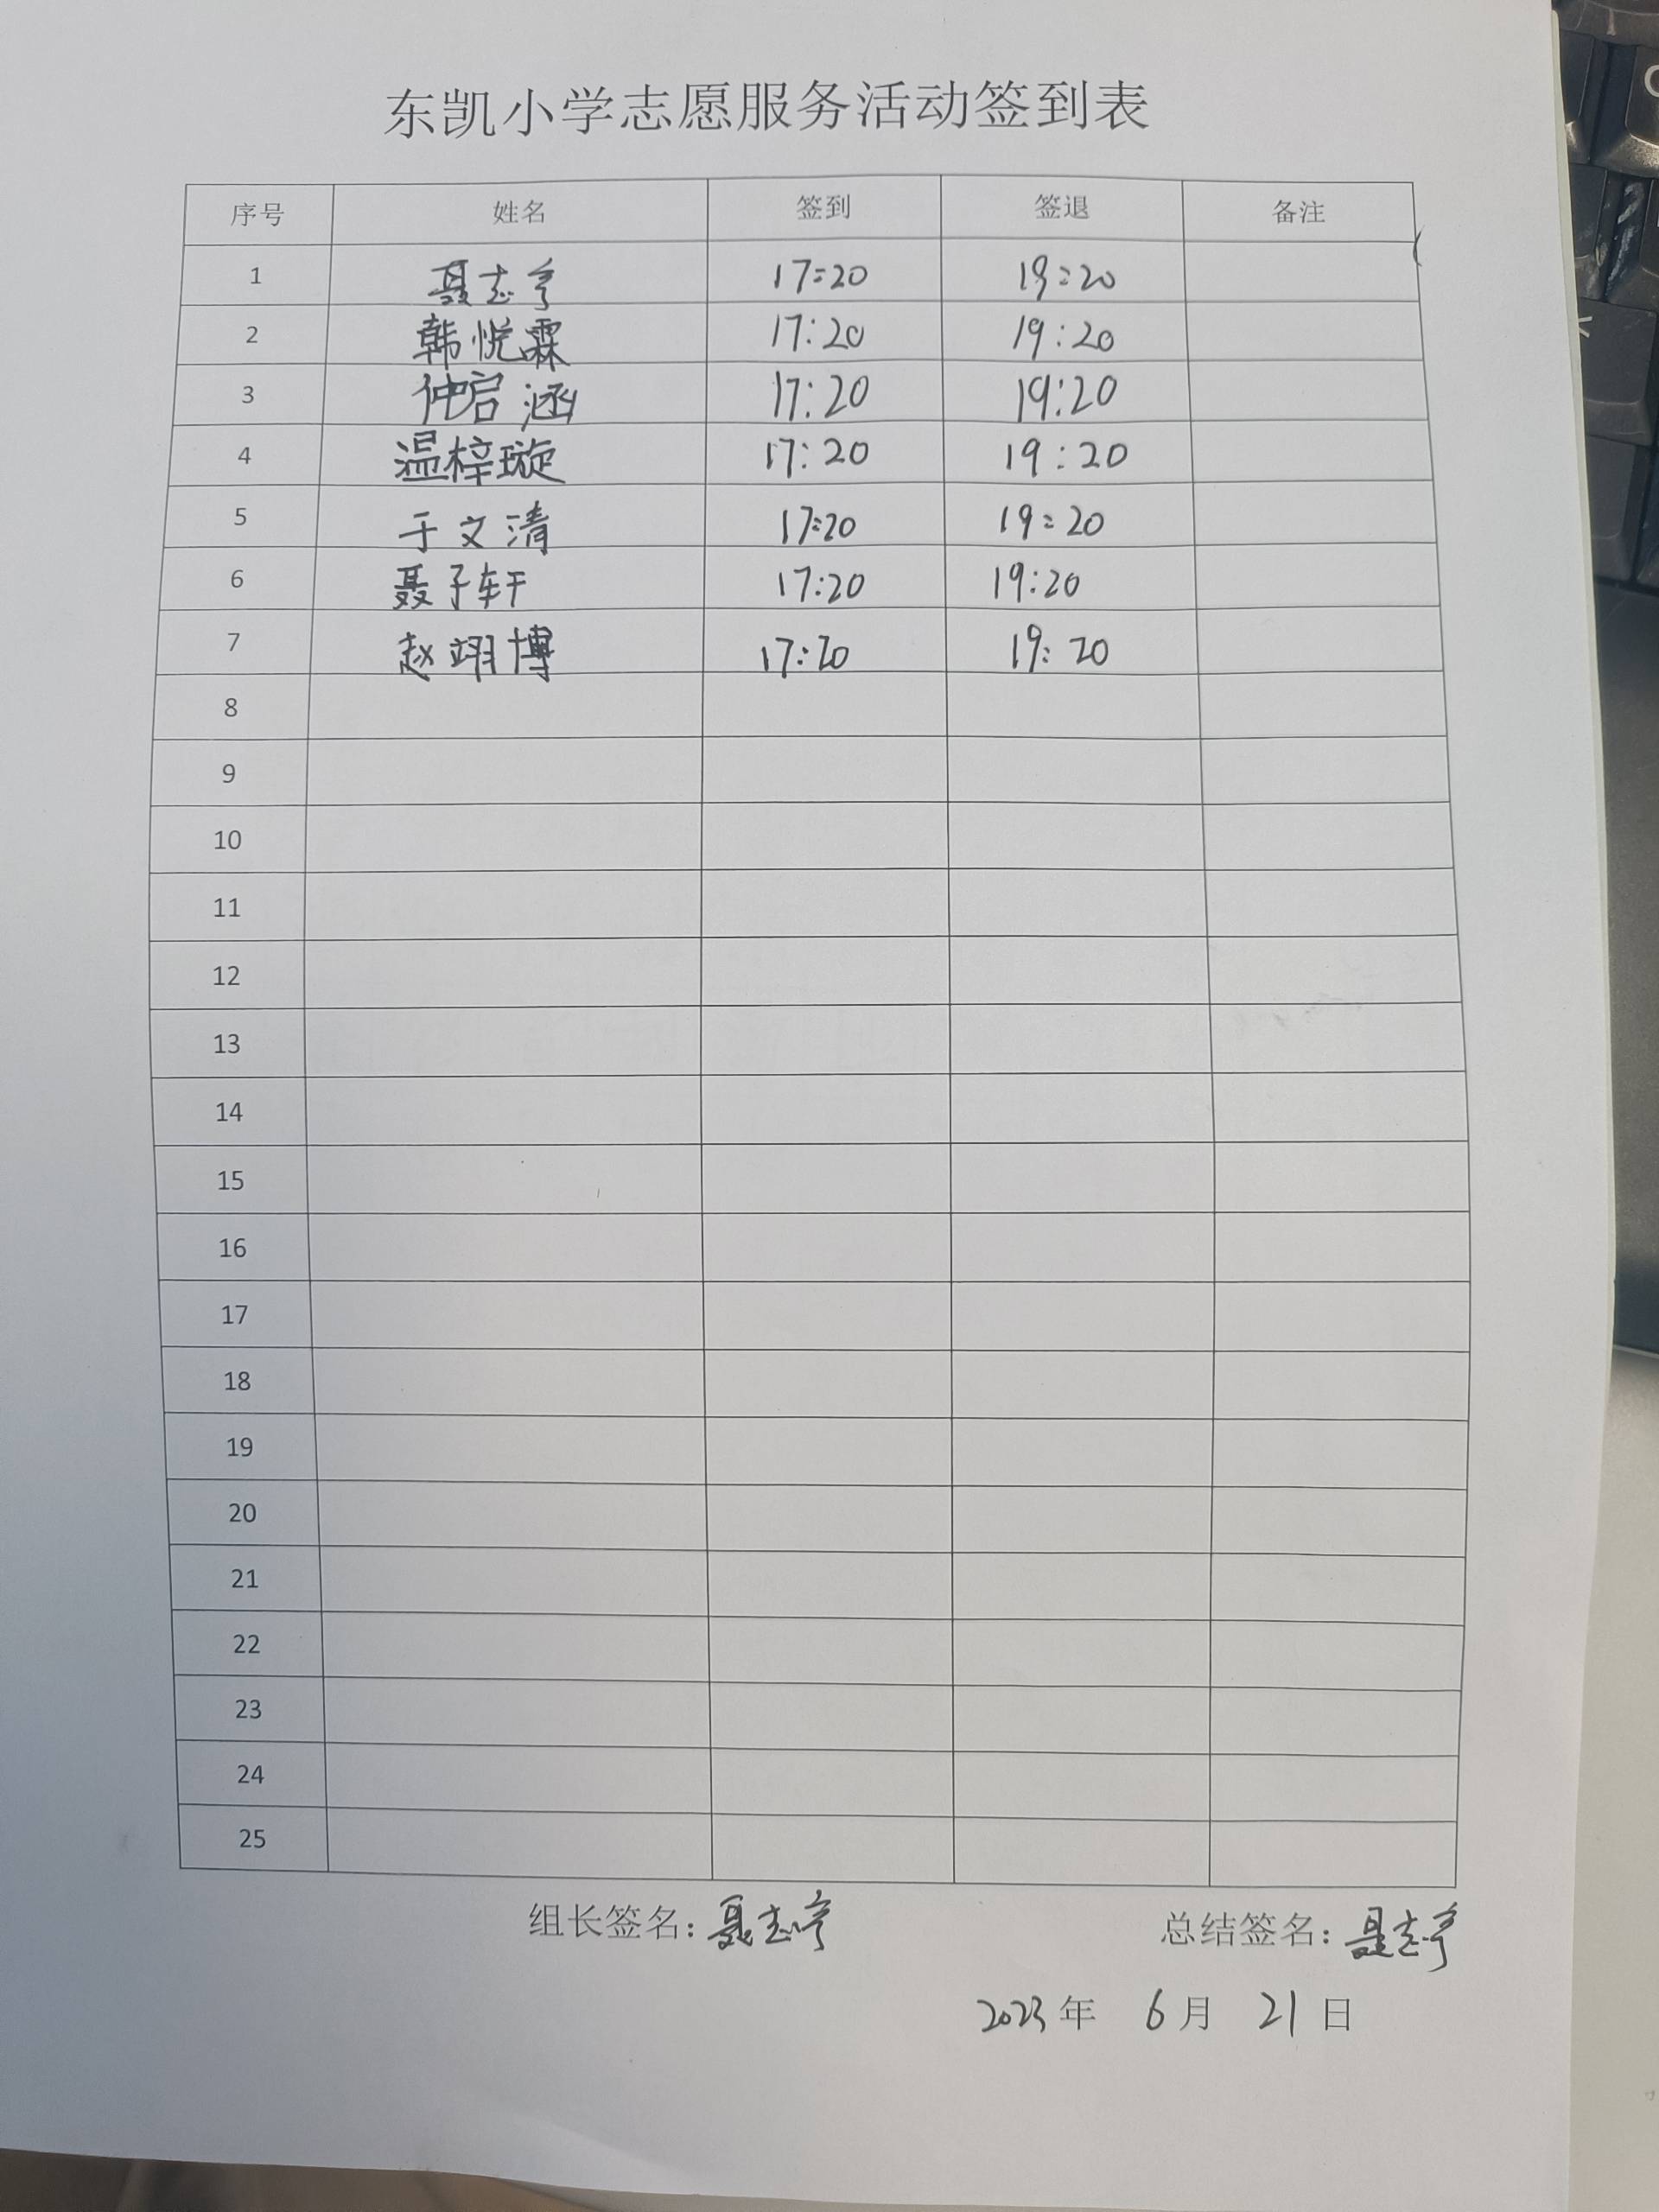 东凯小学志愿服务活动签到表
序号 姓名 签到 签退 备注
1 聂志亨 17:20 19:20
2 韩悦霖 17:20 19:20
3 仲启涵 17:20 19:20
4 温梓璇 17:20 19:20
5 于文清 17:20 19:20
6 聂子轩 17:20 19:20
7 赵翊博 17:20 19:20
8
9
10
11
12
13
14
15
16
17
18
19
20
21
22
23
24
25
组长签名：聂志亨 总结签名：聂志亨
2023年 6月 21日